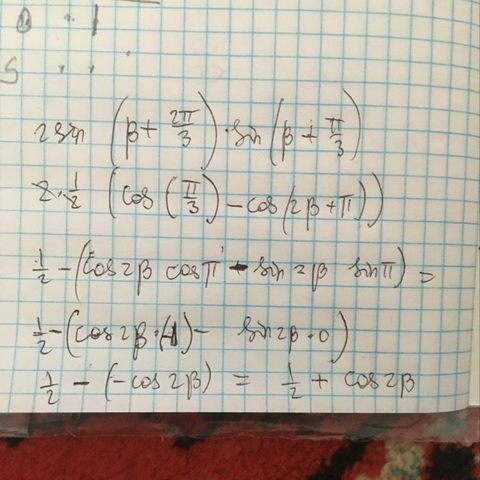 2sin (β + 2π/3) · sin (β + π/3)
2 · 1/2 (cos (π/3) - cos (2β + π))
1/2 - (cos2β cosπ - sin2β sinπ) =
1/2 - (cos2β · (-1) - sin2β · 0)
1/2 - (-cos2β) = 1/2 + cos2β